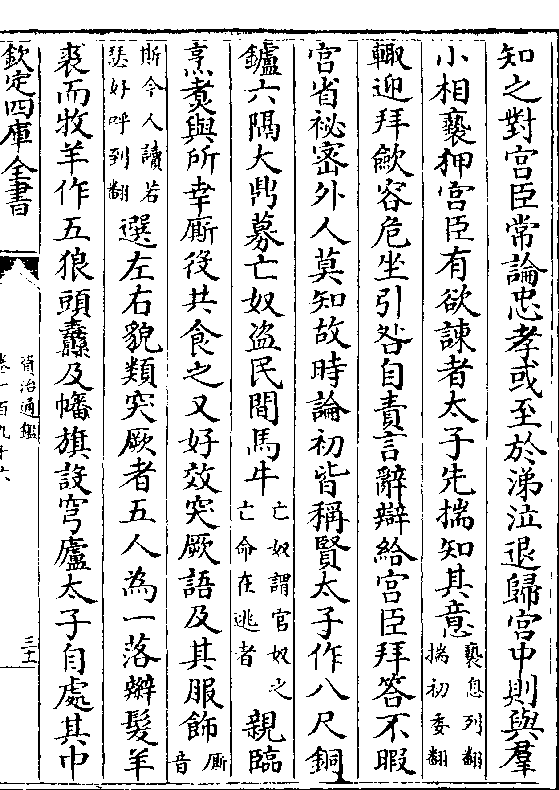 知之對宫臣常論忠孝或至於涕泣退歸宫中則與羣
小相褻狎宫臣有欲諫者太子先揣知其意褻息列翻揣初委翻
輒迎拜歛容危坐引咎自責言辭辯給宫臣拜答不暇
宫省祕宻外人莫知故時論初皆稱賢太子作八尺銅
鑪六隅大鼎募亡奴盗民間馬牛亡奴謂官奴之亡命在逃者親臨
烹煑與所幸厮役共食之又好效突厥語及其服飾厮音
斯今人讀若瑟好呼到翻選左右貌類突厥者五人為一落辮髮羊
裘而牧羊作五狼頭纛及幡旗設穹廬太子自處其中
欽定四庫全書
資治通鑑
卷一百九十六
三十